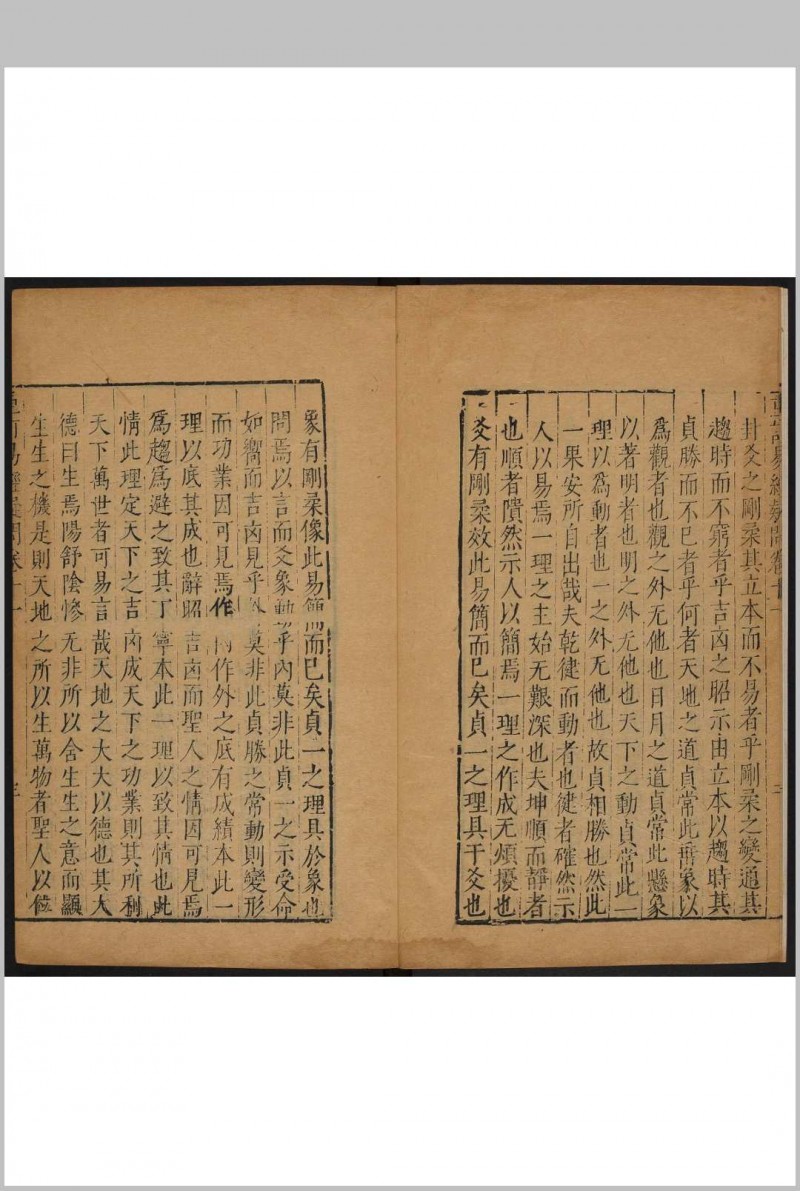 卦爻之剛柔其立本而不易者乎剛柔之變通其
趨時而不窮者乎吉凶之昭示由立本以趨時其
貞勝而不巳者乎何者天地之道貞常此垂象以
爲觀者也觀之外无他也日月之道貞常此懸象
以著明者也明之外无他也天下之動貞常此一
理以爲動者也一之外无他也故貞相勝也然此
一果安所自出哉夫乾健而動者也健者確然示
人以易焉一理之主始无艱深也夫坤順而靜者
也順者隤然示人以簡焉一理之作成无煩擾也
爻有剛柔效此易簡而巳矣貞一之理具于爻也
象有剛柔像此易簡而巳矣貞一之理具於象也
問焉以言而爻象動乎內莫非此貞一之示受命
如嚮而吉凶見乎外莫非此貞勝之常動則變形
而功業因可見焉作內作外之底有成績本此一
理以底其成也辭昭吉凶而聖人之情因可見焉
爲趨爲避之致其丁寧本此一理以致其情也此
情此理定天下之吉凶成天下之功業則其所利
天下萬世者可易言哉天地之大大以德也其大
德曰生焉陽舒陰慘无非所以含生生之意而顯
生生之機是則天地之所以生萬物者聖人以位